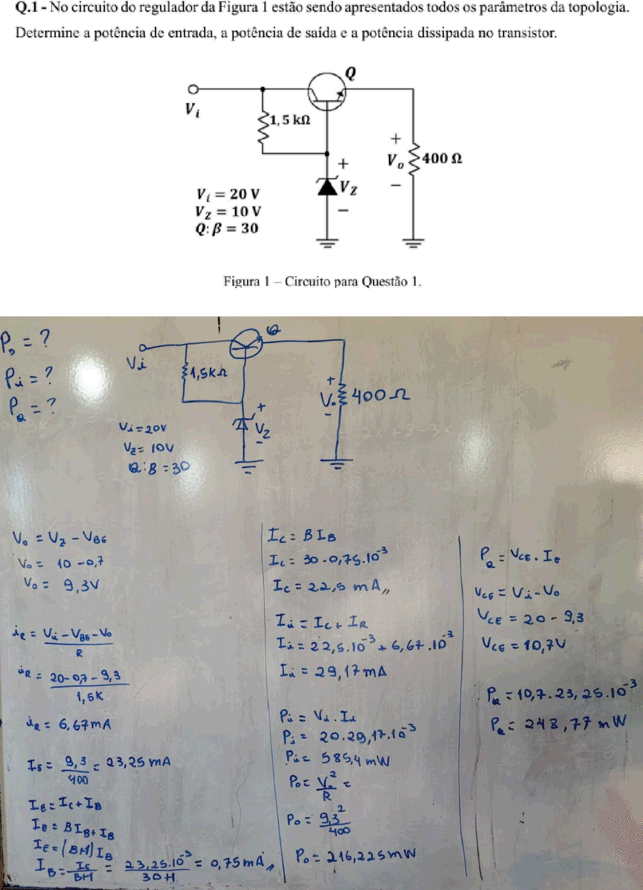 Q.1 - No circuito do regulador da Figura 1 estão sendo apresentados todos os parâmetros da topologia.
Determine a potência de entrada, a potência de saída e a potência dissipada no transistor.
Q
V_i
1,5 kΩ
+
V_o
−
400 Ω
+
V_Z
−
V_i = 20 V
V_Z = 10 V
Q: β = 30
Figura 1 – Circuito para Questão 1.
P_o = ?
P_i = ?
P_Q = ?
Vi
Q
1,5KΩ
+
V_o
-
400Ω
+
V_Z
-
Vi = 20V
V_Z = 10V
Q: B = 30
V_o = V_Z - V_BE
V_o = 10 - 0,7
V_o = 9,3V
i_R = (V_i - V_BE - V_o) / R
i_R = (20 - 0,7 - 9,3) / 1,5K
i_R = 6,67mA
I_E = 9,3 / 400 = 23,25 mA
I_E = I_C + I_B
I_E = B I_B + I_B
I_E = (B+1) I_B
I_B = I_E / (B+1) = 23,25.10^-3 / (30+1) = 0,75mA,,
I_C = B I_B
I_C = 30 . 0,75.10^-3
I_C = 22,5 mA,,
I_i = I_C + I_R
I_i = 22,5.10^-3 + 6,67.10^-3
I_i = 29,17mA
P_i = V_i . I_i
P_i = 20.29,17.10^-3
P_i = 585,4 mW
P_o = V_o^2 / R =
P_o = 9,3^2 / 400
P_o = 216,225mW
P_Q = V_CE . I_E
V_CE = V_i - V_o
V_CE = 20 - 9,3
V_CE = 10,7V
P_Q = 10,7 . 23,25.10^-3
P_Q = 248,77 mW